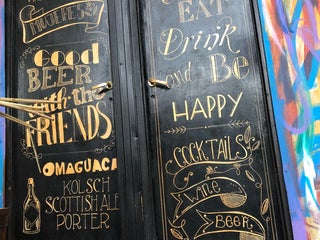 Good
BEER
with the
FRIENDS
OMAGUACA
KOLSCH
SCOTTISH ALE
PORTER
EAT
Drink
and Be
HAPPY
COCKTAILS
Wine
BEER